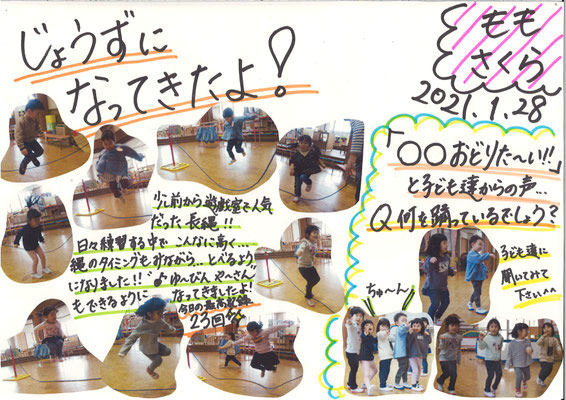 じょうずに
なってきたよ!
もも
さくら
2021.1.28
少し前から遊戯室で人気
だった長縄!!
日々練習する中でこんなに高く…
縄のタイミングもみながら…とべるよう
になりました!!♪ゆ〜びんやさん♪
もできるように
なってきましたよ!
今日の最高記録
23回
「〇〇おどりた〜い!!」
と子ども達からの声…
Q何を踊っているでしょう?
子ども達に
聞いてみて
下さい^^
ちゅ〜ん